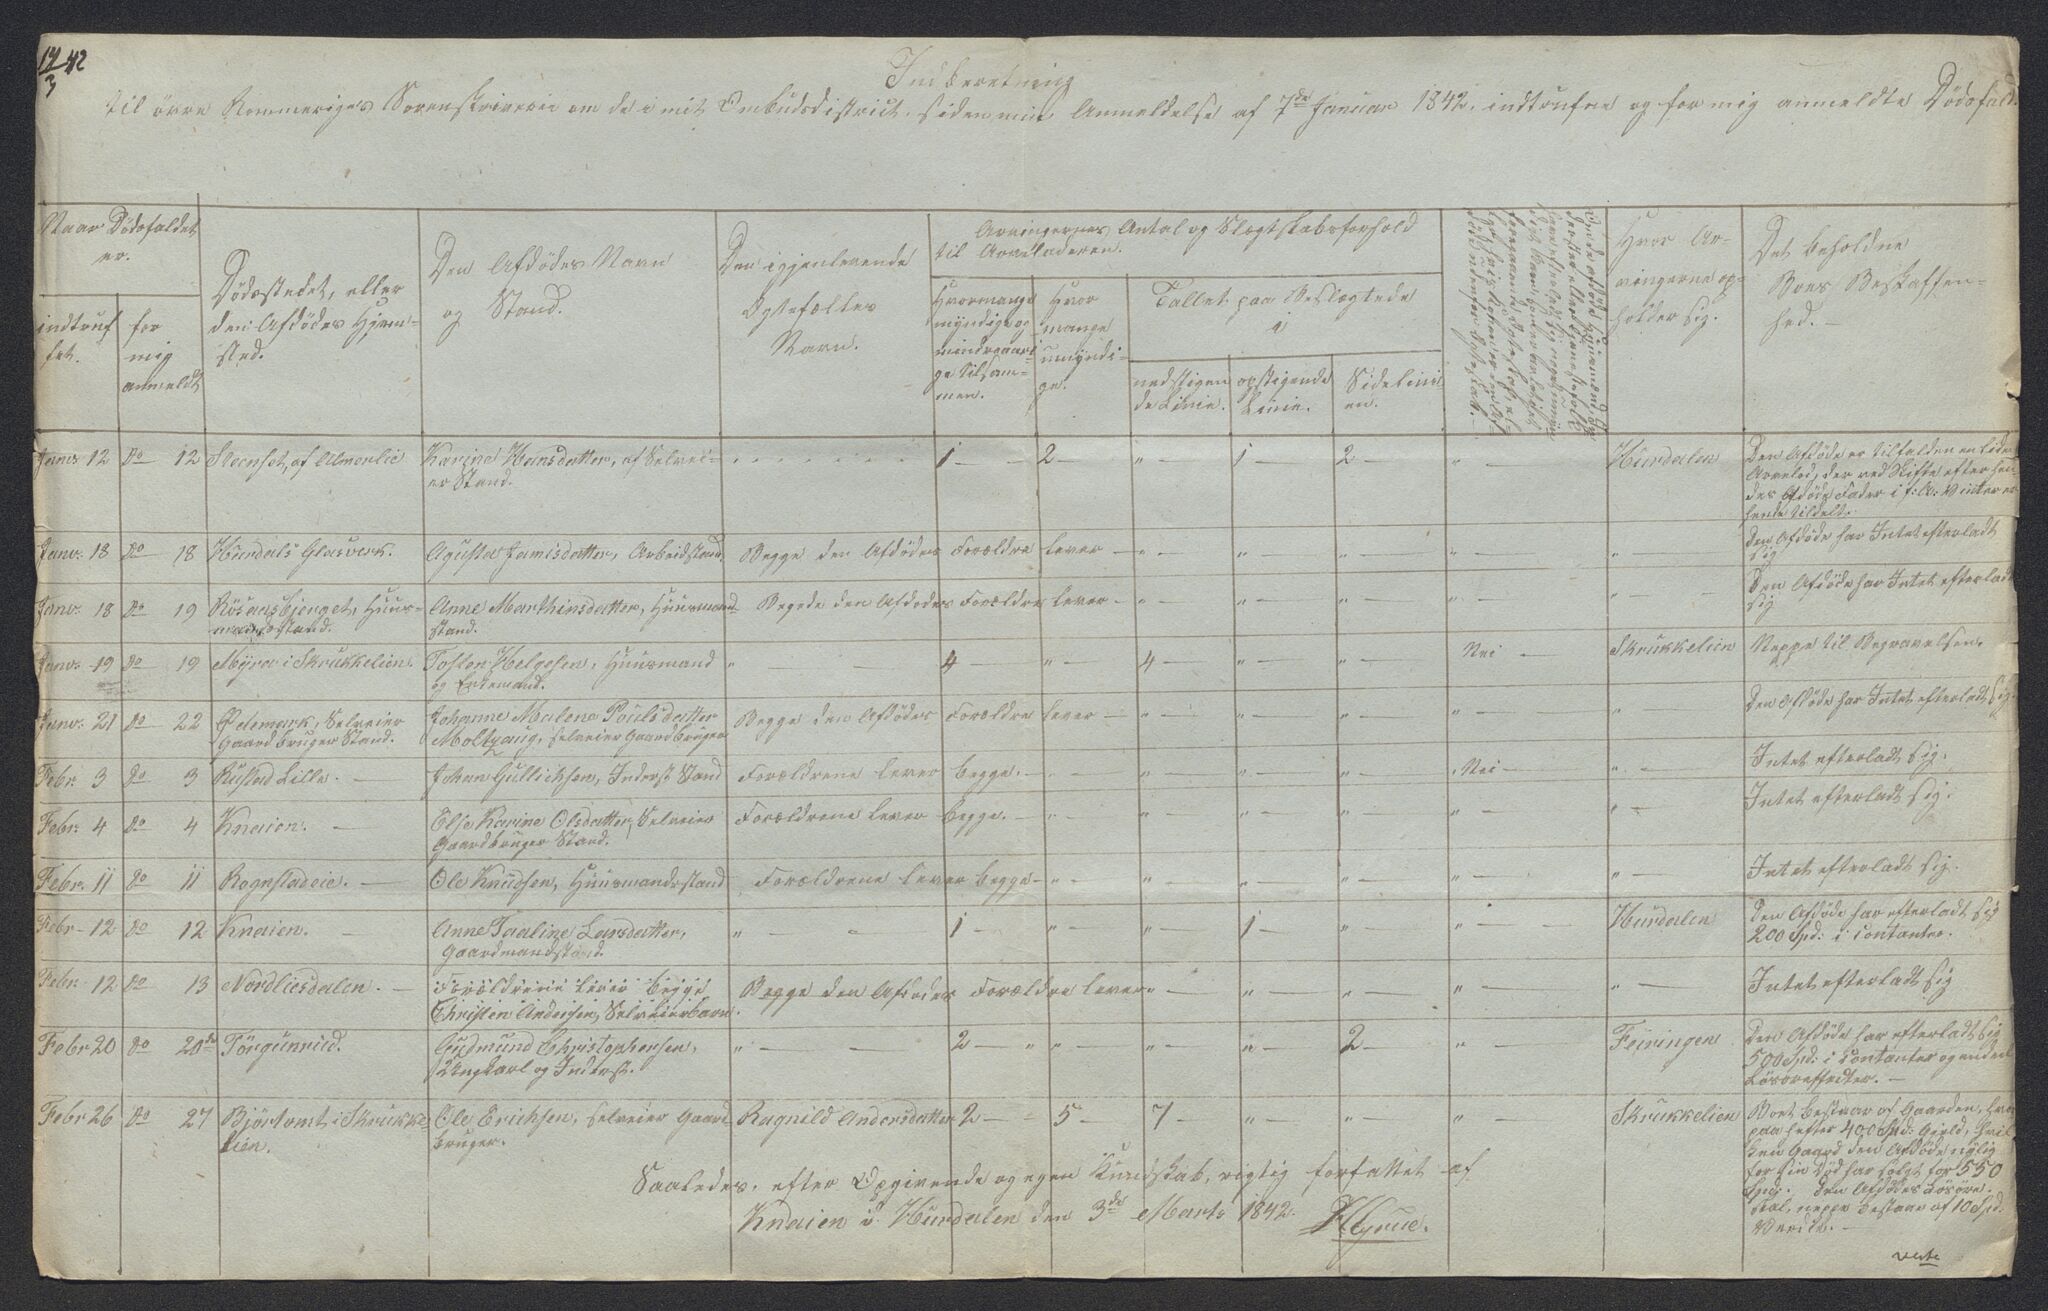 14/3 42
Indberetning
til övre Rommeriges Sorenskriverie om de i mit Ombudsdistrict, siden min Anmeldelse af 7de Januar 1842, indtrufne og for mig anmeldte Dödsfald.
Naar Dödsfaldet er.
indtruffet.
for mig anmeldt
Dödsstedet, eller den Afdödes Hjemsted.
Den Afdödes Navn og Stand.
Den igjenlevende Ægtefælles Navn.
Arvingernes Antal og Slægtskabsforhold til Arveladeren.
Hvormange myndige og mindreaarige tilsammen.
Hvor mange umyndige.
Tallet paa Beslægtede i
nedstigende Linie.
opstigende Linie.
Sidelinien.
Hvor Arvingerne opholder sig.
Det beholdne Boes Beskaffenhed. —
Janv 12 Do 12 Steenset, af Almenlie Karine Hansdatter, af Selveier Stand. 1 — 2 — " — 1 — 2 — " — Hurdalen Den Afdöde er tilfalden en liden Arvelod, der ved Skifte efter hendes afdöde Fader i f: A: Vinter er hende tildelt.
Janv. 18 Do 18 Hurdals Glasverk. Agusta Jamisdatter, Arbeidstand. Begge den Afdödes Forældre lever — " — " — " — " — " — Den Afdöde har Intet efterladt sig
Janv. 18 Do 19 Rösaasbjerget, Huusmandsstand. Anne Marthinsdatter, Huusmandstand. Begge den Afdödes Forældre lever — " — " — " — " — " — Den Afdöde har Intet efterladt sig
Janv. 19 Do 19 Myra i Skrukkelien Tosten Helgesen, Huusmand og Enkemand. " — 4 — " — 4 — " — " — Nei — Skrukkelien Neppe til Begravelsen.
Janv. 21 Do 22 Gjödemark, Selveier Gaardbruger Stand. Johanne Malene Poulsdatter Moltzaug, selveier Gaardbruger Begge den Afdödes Forældre lever — " — " — " — " — " — Den Afdöde har Intet efterladt sig.
Febr. 3 Do 3 Rustad Lille. — Johan Gullichsen, Inderst Stand Forældrene lever begge. — " — " — " — Nei — " — Intet efterladt sig.
Febr. 4 Do 4 Knaien. — Else Karine Olsdatter, Selveier Gaardbruger Stand. Forældrene lever begge. — " — " — " — " — " — Intet efterladt sig.
Febr. 11 Do 11 Rognstadeie. — Ole Knudsen, Huusmandsstand Forældrene lever begge — " — " — " — " — " — Intet efterladt sig.
Febr. 12 Do 12 Knaien. — Anne Paaline Larsdatter, Gaardmandstand. " — 1 — " — " — 1 — " — " — Hurdalen Den Afdöde har efterladt sig 200 Spd: i contanter.
Febr. 12 Do 13 Nordliesdalen. — Forældrene lever begge Christen Andersen, Selveierbarn. Begge den Afdödes Forældre lever " — " — " — " — " — Intet efterladt sig
Febr 20 Do 20de Törgunrud. Gudmund Christophersen, Ungkarl og Inderst. " — 2 — " — " — " — 2 — " — Feiringen Den Afdöde har efterladt sig 500 Spd: i contanter og endeel Lösöreffecter. —
Febr 26 Do 27 Bjørtomt i Skrukkelien. Ole Erichsen, selveier Gaardbruger. Ragnild Andersdatter 2 — 5 — 7 — " — " — " — Skrukkelien Boet bestaar af Gaarden, hvorpaa hefter 400 Spd: Gield, hvilken Gaard den Afdöde nylig för sin Död har solgt for 550 Spd. Den Afdödes Lösöre skal neppe bestaae af 10 Spd. Værdie. —
Saaledes, efter Opgivende og egen Kundskab, rigtig forfattet af
Knaien i Hurdalen den 3de Marts 1842. HGrue.